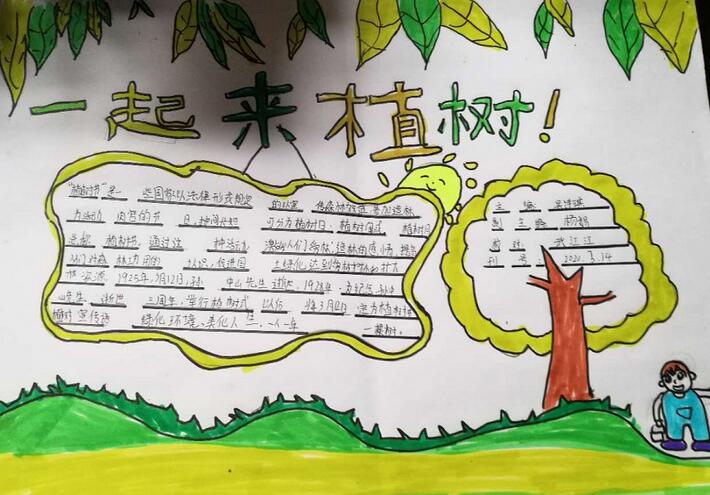 一起来植树！
"植树节"是一些国家以法律形式规定的以宣传森林效益
为活动内容的节日，按时间长短可分为植树日、植树周或植树月
总称植树节。通过这种活动，激发人们爱林、造林的感情，提高
人们对森林功用的认识，促进国土绿化，达到爱林护林和扩大
林资源。1925年3月12日，孙中山先生逝世，1928年，为纪念孙中
山先生逝世三周年，举行植树式以后将3月12日定为植树节
植树宣传语 绿化环境，美化人生。一人一年一棵树。
主编
副主编 杨娟
设计 武江江
刊号 2021.3.14